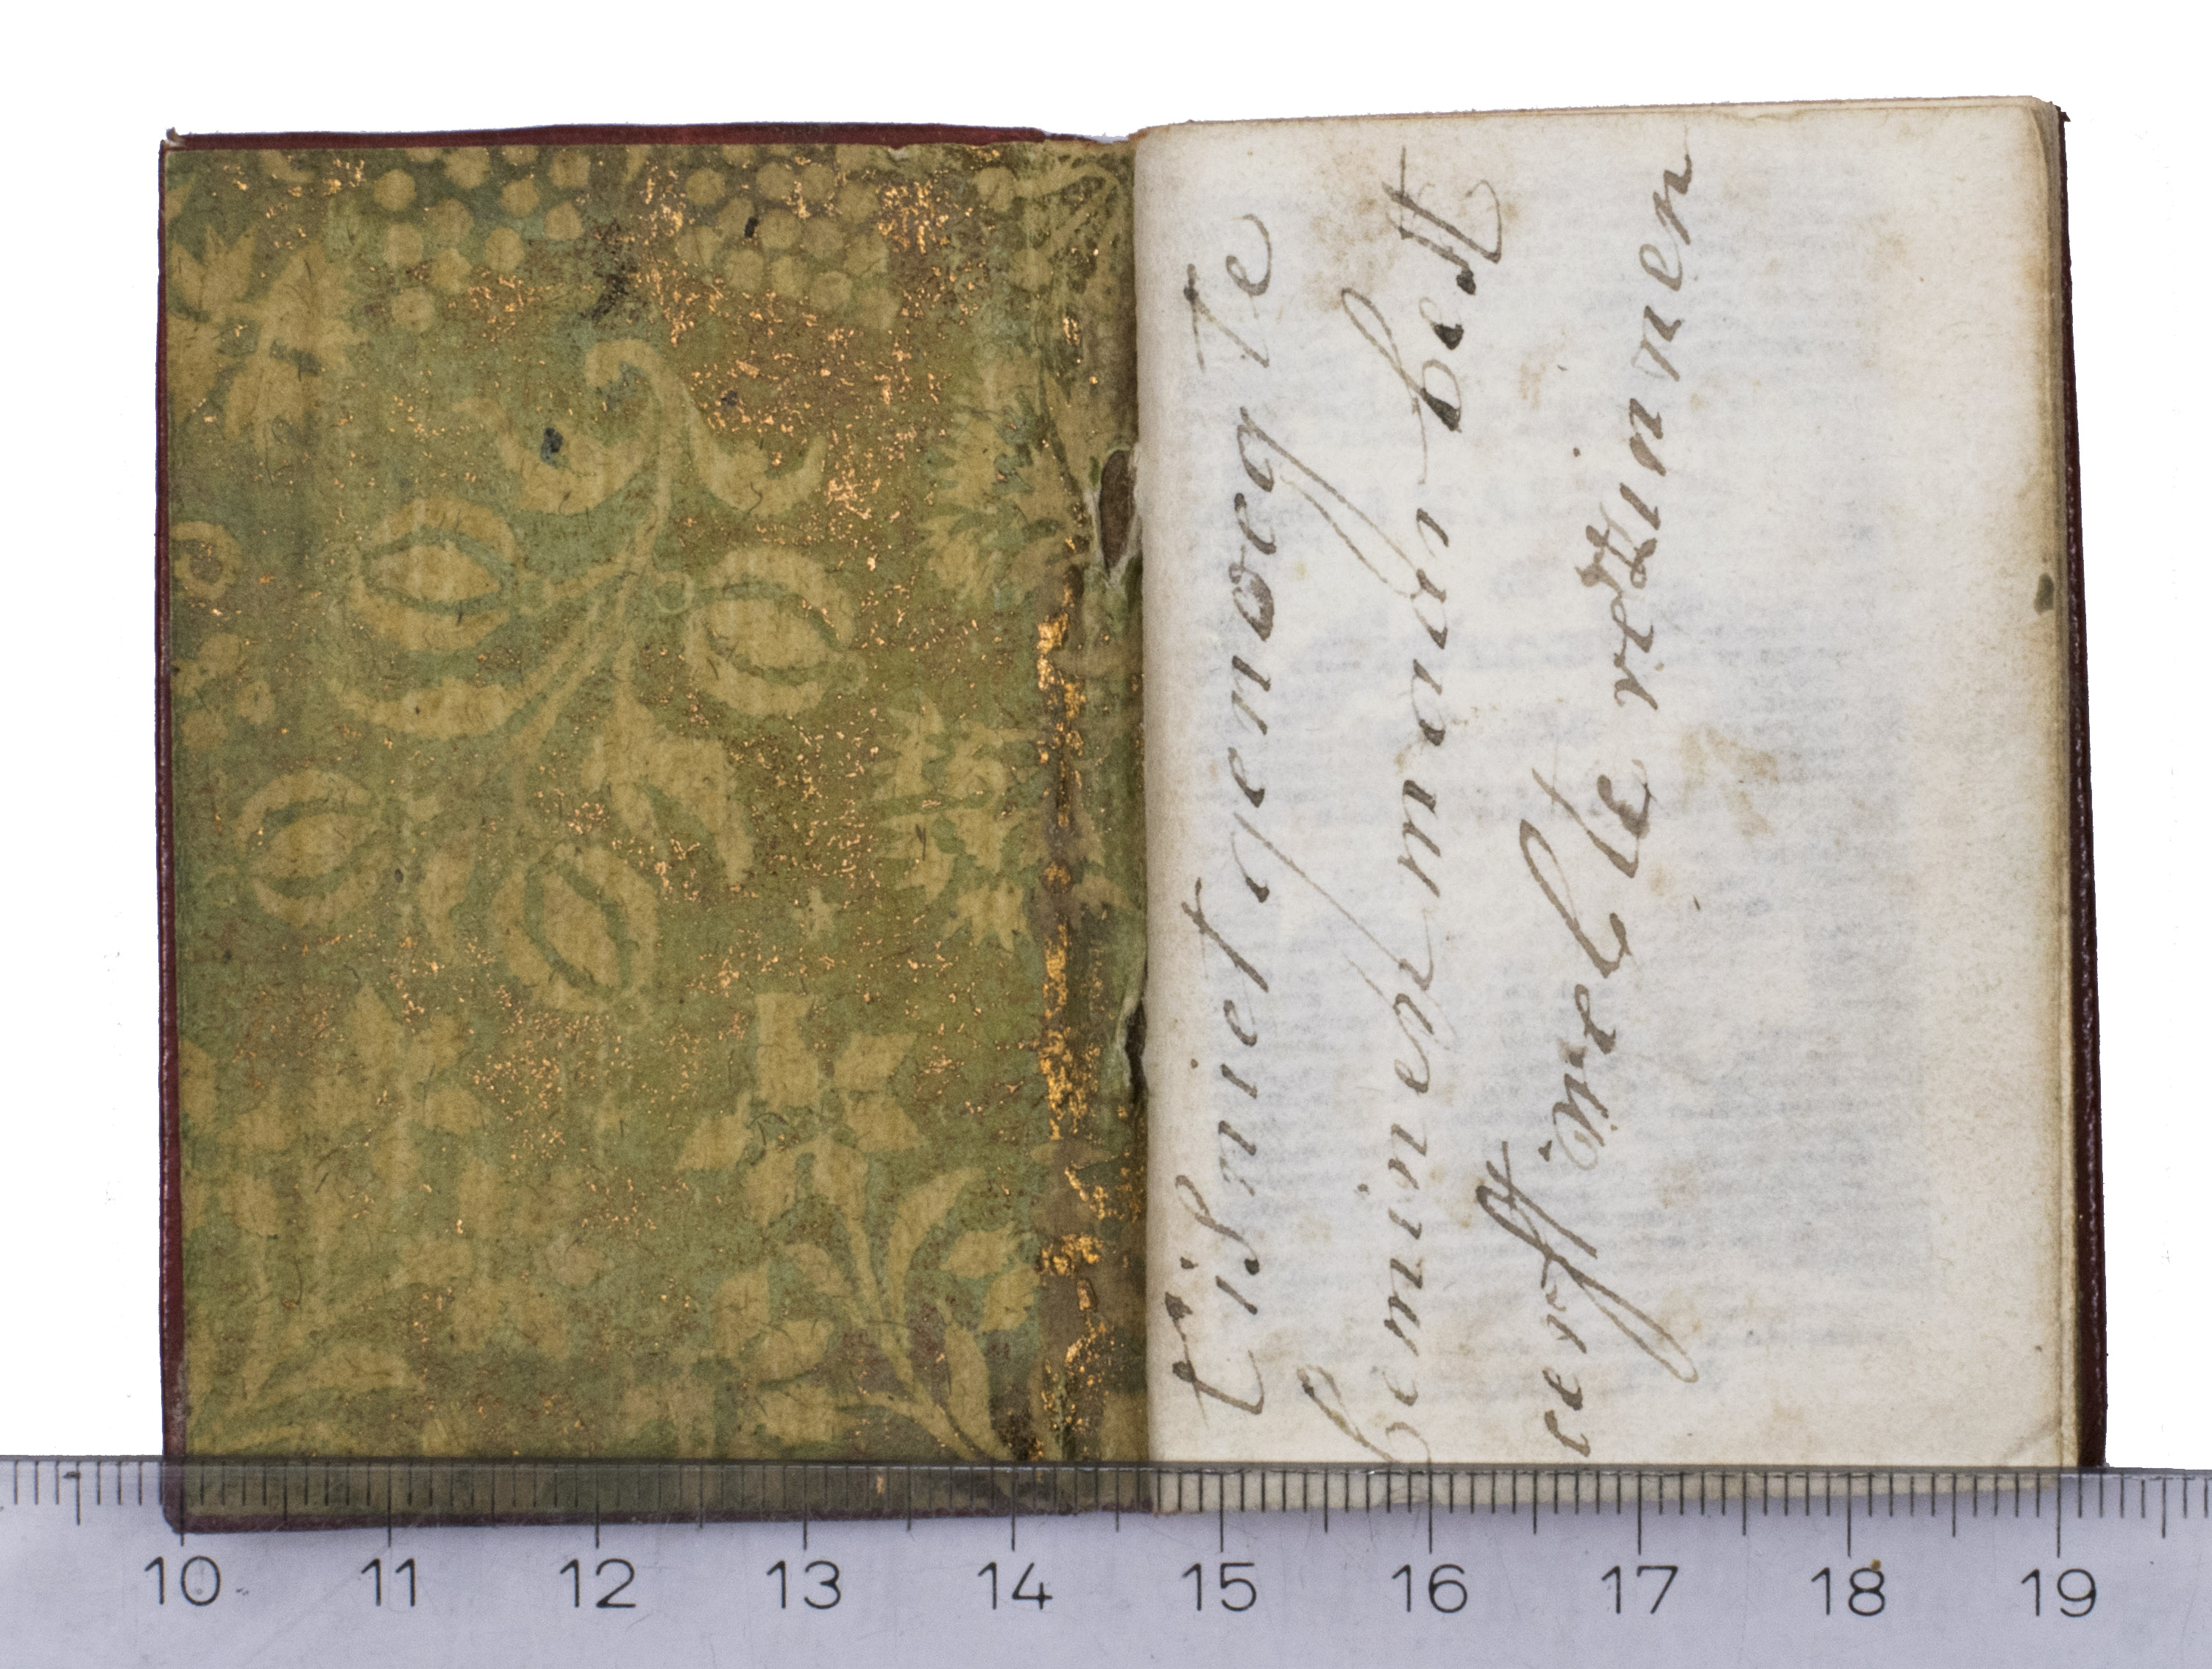 t is niet genoeg te
beminen maar best
eerst wel te versinnen
10 11 12 13 14 15 16 17 18 19